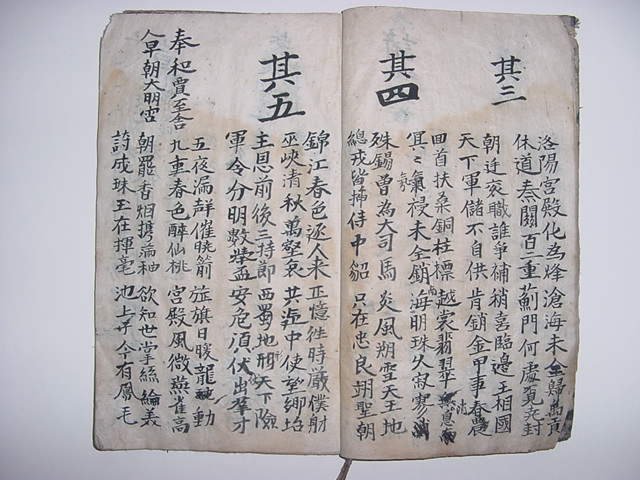 其三
洛陽宮殿化為烽滄海未全歸禹貢
休道秦關百二重薊門何處覓堯封
朝廷袞職誰爭補稍喜臨邊王相國
天下軍儲不自供肯銷金甲事春農
其四
回首扶桑銅柱標越裳翡翠無消息
冥冥氛祲未全銷南海明珠久寂寥
殊錫曽為大司馬炎風朔雪天王地
總戎皆揷侍中貂只在忠良翊聖朝
其五
錦江春色逐人来正憶徃時嚴僕射
巫峽清秋萬壑哀共迎中使望鄉坮
主恩前後三持即西蜀地形天下險
軍令分明數擧盃安危湏仗出羣才
奉和賈至舍
人早朝大明宮
五夜漏聲催曉箭旌旗日暖龍蛇動
九重春色醉仙桃宮殿風微燕雀高
朝罷香烟携滿袖欲知世掌絲綸美
詩成珠玉在揮毫池上于今有鳳毛